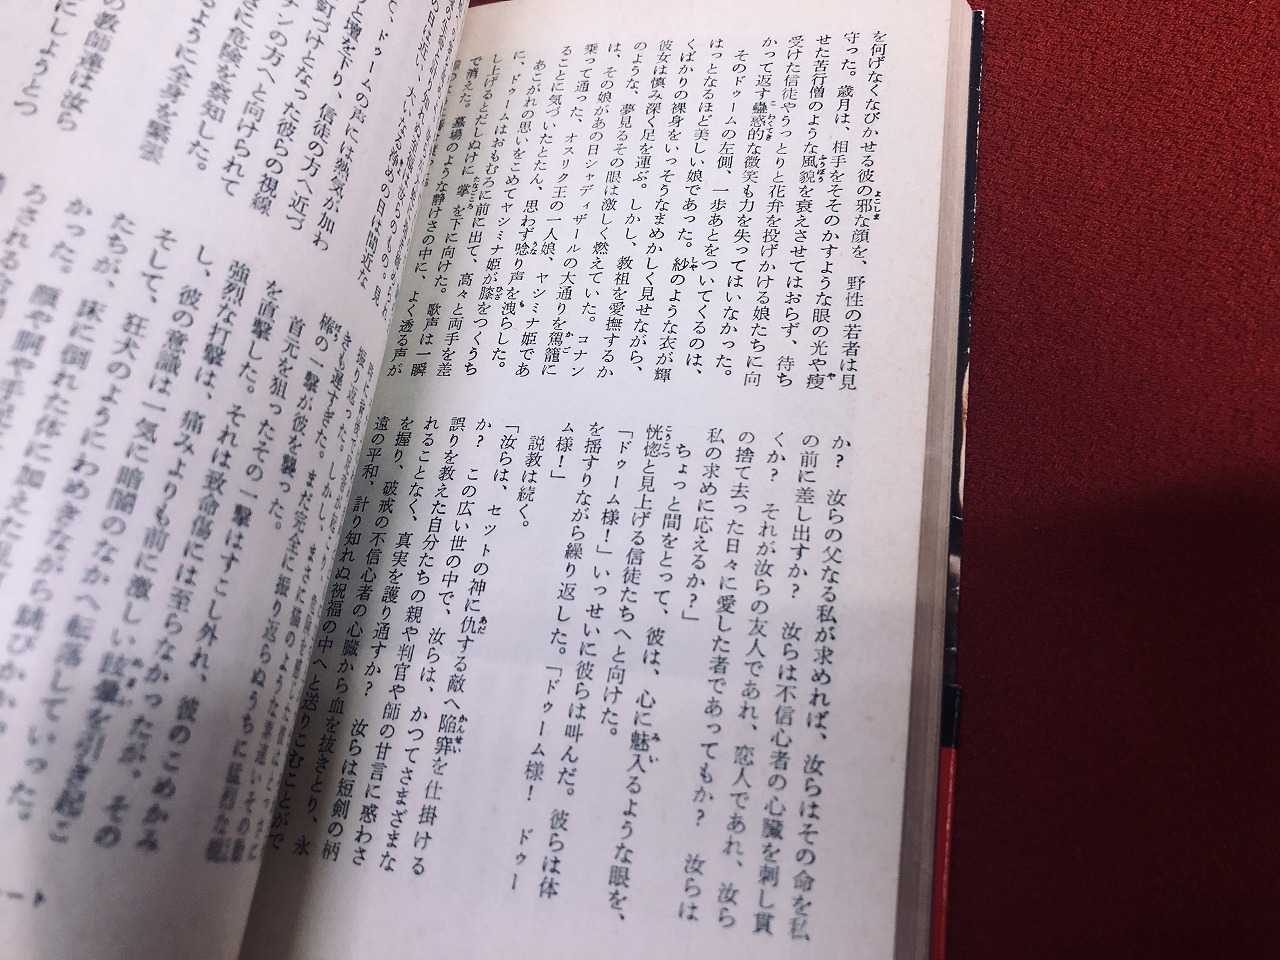 を何げなくなびかせる彼の邪な顔を、野性の若者は見
守った。歳月は、相手をそそのかすような眼の光や痩
せた苦行僧のような風貌を衰えさせてはおらず、待ち
受けた信徒やうっとりと花弁を投げかける娘たちに向
かって返す蠱惑的な微笑も力を失ってはいなかった。
そのドゥームの左側、一歩あとをついてくるのは、
はっとなるほど美しい娘であった。紗のような衣が輝
くばかりの裸身をいっそうなまめかしく見せながら、
彼女は慎み深く足を運ぶ。しかし、教祖を愛撫するか
のような、夢見るその眼は激しく燃えていた。コナン
は、その娘があの日シャディザールの大通りを駕籠に
乗って通った、オスリク王の一人娘、ヤシミナ姫であ
ることに気づいたとたん、思わず唸り声を洩らした。
あこがれの思いをこめてヤシミナ姫が膝をつくうち
に、ドゥームはおもむろに前に出て、高々と両手を差
し上げるとだしぬけに掌を下に向けた。歌声は一瞬
で消えた。墓場のような静けさの中に、よく透る声が
か？　汝らの父なる私が求めれば、汝らはその命を私
の前に差し出すか？　汝らは不信心者の心臓を刺し貫
くか？　それが汝らの友人であれ、恋人であれ、汝ら
の捨て去った日々に愛した者であってもか？　汝らは
私の求めに応えるか？」
ちょっと間をとって、彼は、心に魅入るような眼を、
恍惚と見上げる信徒たちへと向けた。
「ドゥーム様！」いっせいに彼らは叫んだ。彼らは体
を揺すりながら繰り返した。「ドゥーム様！　ドゥー
ム様！」
説教は続く。
「汝らは、セットの神に仇する敵へ陥穽を仕掛ける
か？　この広い世の中で、汝らは、かつてさまざまな
誤りを教えた自分たちの親や判官や師の甘言に惑わさ
れることなく、真実を護り通すか？　汝らは短剣の柄
を握り、破戒の不信心者の心臓から血を抜きとり、永
遠の平和、計り知れぬ祝福の中へと送りこむことがで
ドゥームの声には熱気が加わ
と壇を下り、信徒の方へ近づ
釘づけとなった彼らの視線
ナンの方へと向けられて
さに危険を察知した。
るように全身を緊張
の教師達は汝ら
にしようとつ
きも遅すぎた。まだ完全に振り返らぬうちに猛烈な棍
棒の一撃が彼を襲った。
首元を狙ったその一撃はすこし外れ、彼のこめかみ
を直撃した。それは致命傷には至らなかったが、その
強烈な打撃は、痛みよりも前に激しい眩暈を引き起こ
し、彼の意識は一気に暗闇のなかへ転落していった。
そして、狂犬のようにわめきながら
たちが、床に倒れた体に加えた
かった。